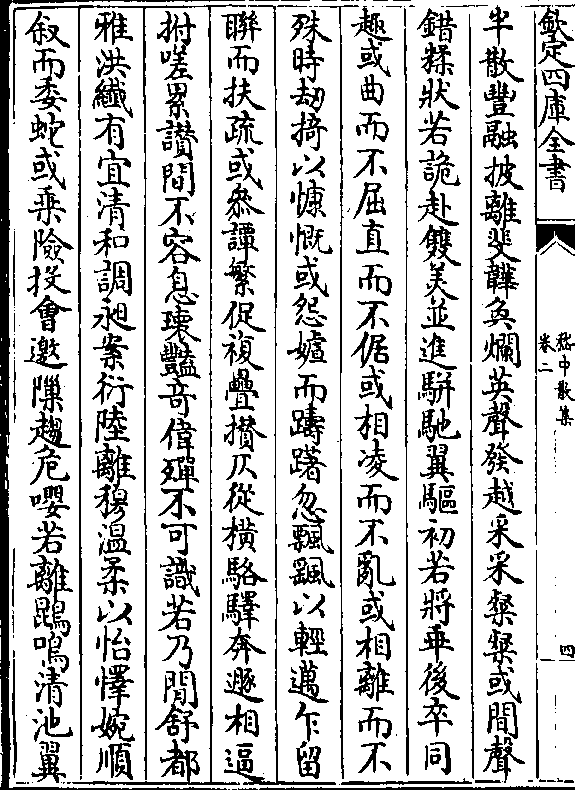 欽定四庫全書
嵇中散集
卷二
四
半散豐融披離斐韡奐爛英聲發越采采粲粲或間聲
錯糅狀若詭赴雙美並進駢馳翼驅初若將乖後卒同
趣或曲而不屈直而不倨或相凌而不亂或相離而不
殊時劫掎以慷慨或怨㜘而躊躇忽飄颻以輕邁乍留
聯而扶疏或參譚繁促複疊攢仄從橫駱驛奔遯相逼
拊嗟累讃間不容息瓌豔奇偉殫不可識若乃閒舒都
雅洪纖有宜清和調昶案衍陸離穆温柔以怡懌婉順
叙而委蛇或乗險投會邀隟趨危嚶若離鵾鳴清池翼